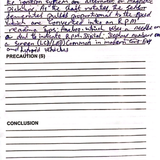 the ignition system an alternator or magnetic
pickup. As the shaft rotates the sensor
generates pulses proportional to the speed
which are converted into an RPM
reading. Types: Analog- which uses a needle on
a dial to indicate RPM. Digital- Displays numbers on
a screen (LCD/LED) Common in modern cars
and hybrid vehicles
PRECAUTION (S)
CONCLUSION